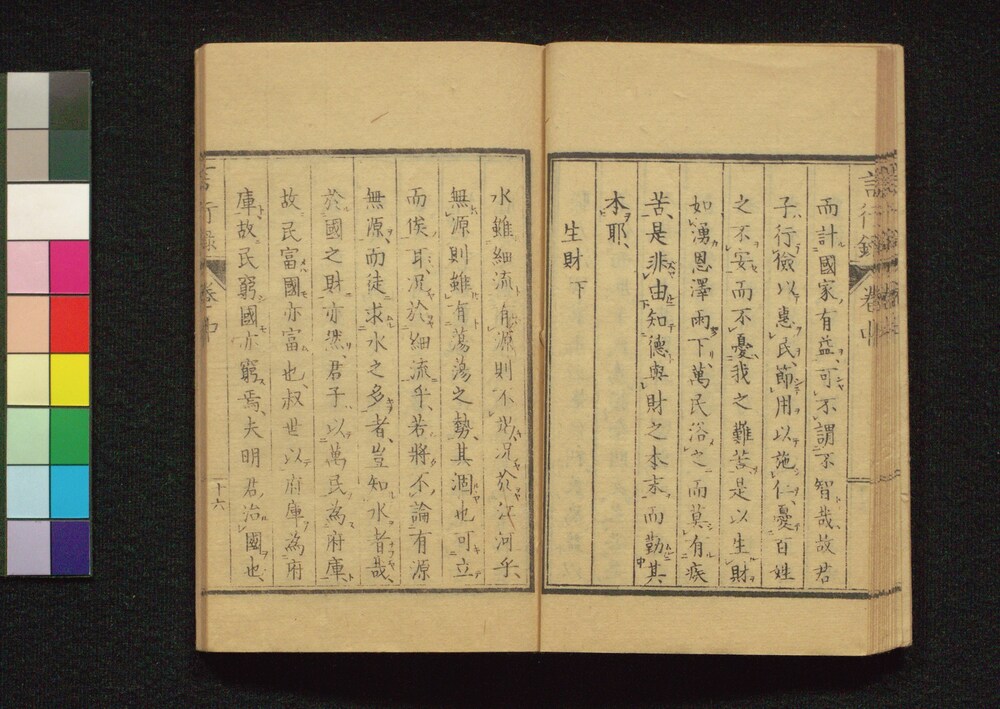 言行録 卷中
而計國家有益、可不謂不智哉、故君
子行儉以惠民、節用以施仁、憂百姓
之不安、而不憂我之難苦、是以生財
如湧、恩澤雨下、萬民浴之、而莫有疾
苦、是非由知德與財之本末、而勤其
本耶、
生財下
水雖細流、有源則不涸、況於江河乎、
無源則雖有蕩蕩之勢、其涸也可立
而俟耳、况於細流乎、若將不論有源
無源、而徒求水之多者、豈知水者哉、
於國之財亦然、君子以萬民為府庫
故民富國亦富也、叔世以府庫為府
庫故民窮國亦窮焉、夫明君治國也、
言行録 卷中
十六